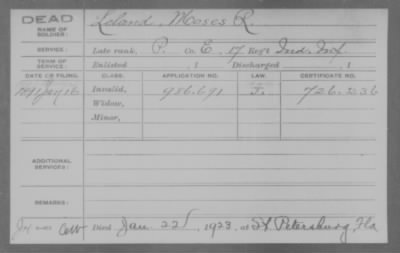 DEAD
NAME OF SOLDIER: Leland, Moses R.
SERVICE: Late rank, P. Co. E, 17 Reg't Ind. Inf.
TERM OF SERVICE: Enlisted , 1 Discharged , 1
DATE OF FILING. CLASS. APPLICATION NO. LAW. CERTIFICATE NO.
1891 Jan 16 Invalid, 986.691 F. 726.236
Widow,
Minor,
ADDITIONAL SERVICES:
REMARKS:
Died Jan 22, 1923, at St. Petersburg, Fla